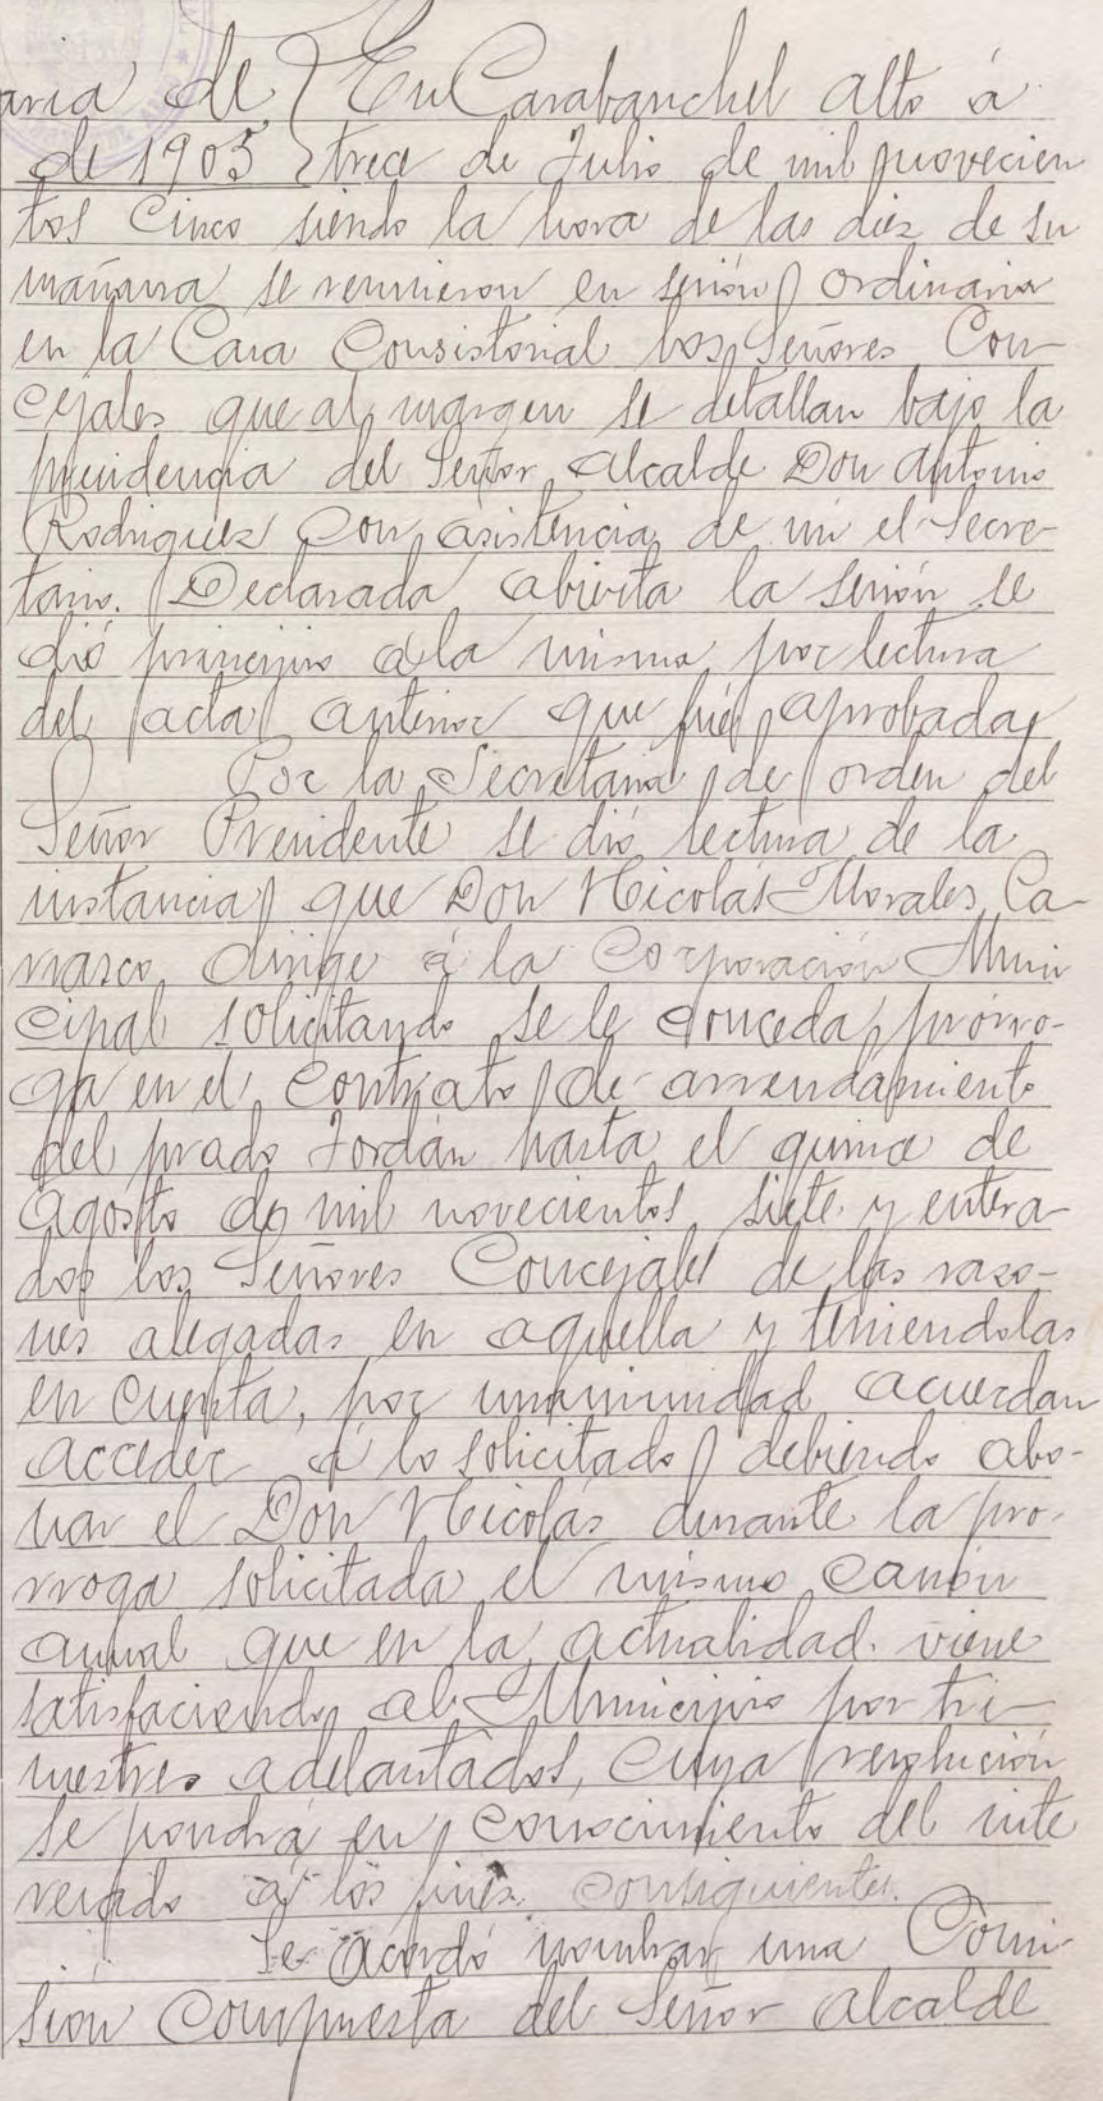 aria de En Carabanchel alto á
de 1905 trece de Julio de mil novecien
tos Cinco siendo la hora de las diez de su
mañana se reunieron en sesión ordinaria
en la Casa Consistorial los Señores Con-
cejales que al margen se detallan bajo la
presidencia del Señor alcalde Don Antonio
Rodriguez Con asistencia de mi el Secre-
tario. Declarada abierta la sesión se
dió principio a la misma por lectura
del acta anterior que fué aprobada
Por la Secretaria de orden del
Señor Presidente se dió lectura de la
instancia que Don Nicolás Morales Ca-
rrasco dirige á la Corporación Muni
cipal solicitando se le conceda prórro-
ga en el Contrato de arrendamiento
del prado Jordán hasta el quince de
Agosto de mil novecientos siete y entera-
dos los Señores Concejales de las razo-
nes alegadas en aquella y teniendolas
en cuenta, por unanimidad acuerdan
acceder á lo solicitado debiendo abo-
nar el Don Nicolás durante la pro-
rroga solicitada el mismo canon
anual que en la actualidad viene
satisfaciendo al Municipio por tri-
mestres adelantados, Cuya resolución
se pondrá en conocimiento del inte
resado a los fines consiguientes.
Se acordó nombrar una Comi-
sion Compuesta del Señor alcalde